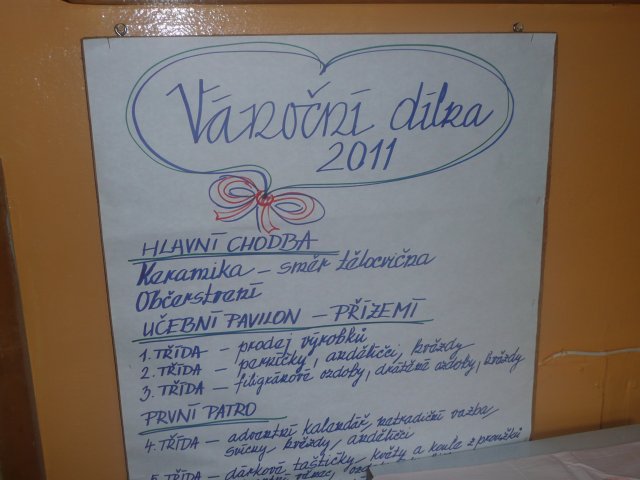 Vánoční dílna
2011
HLAVNÍ CHODBA
Keramika – směr tělocvična
Občerstvení
UČEBNÍ PAVILON – PŘÍZEMÍ
1. TŘÍDA – prodej výrobků
2. TŘÍDA – perníčky, andělíčci, hvězdy
3. TŘÍDA – filigránové ozdoby, drátěné ozdoby, hvězdy
PRVNÍ PATRO
4. TŘÍDA – adventní kalendář, netradiční vazba
svícny, hvězdy, andělíčci
5. TŘÍDA – dárkové taštičky, květy a koule z proužků